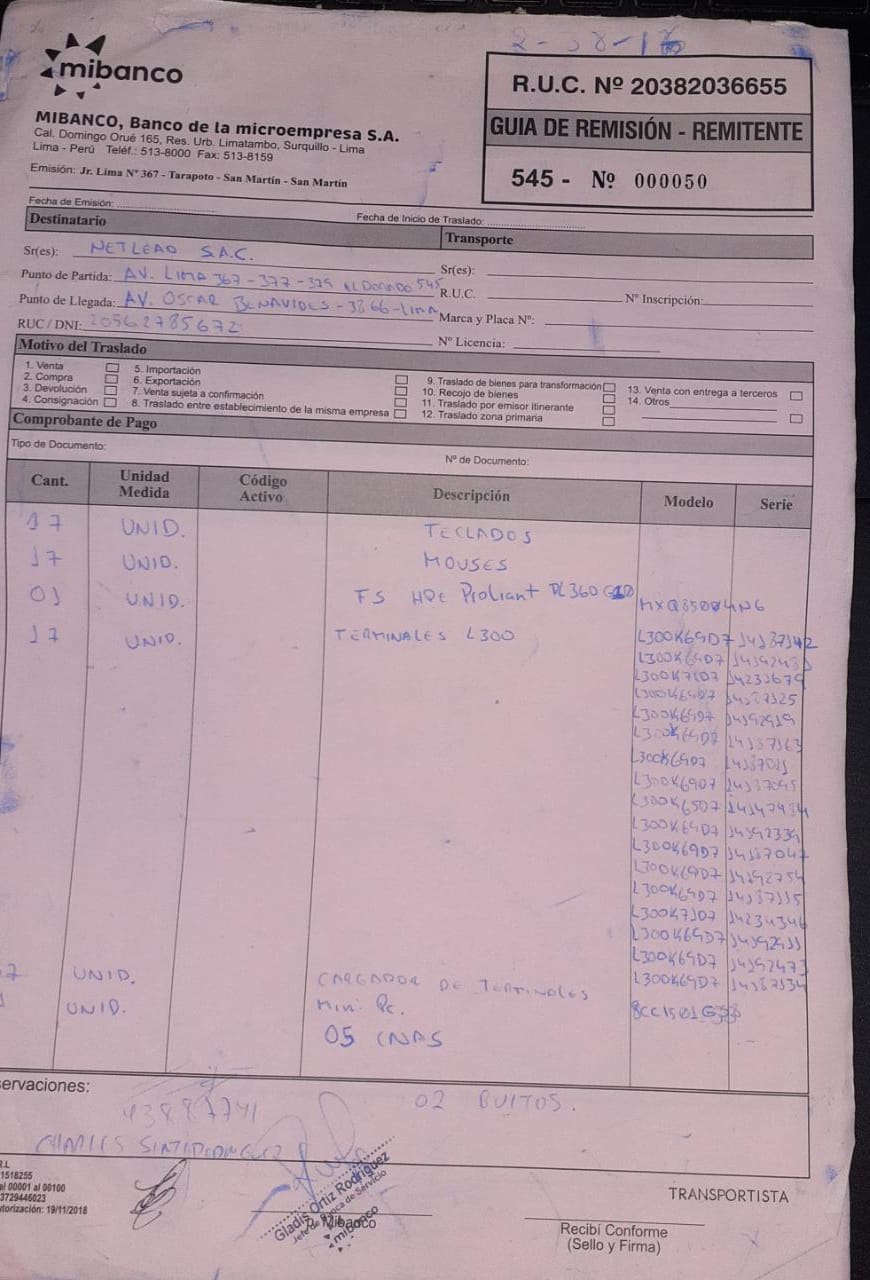 mibanco
MIBANCO, Banco de la microempresa S.A.
Cal. Domingo Orué 165, Res. Urb. Limatambo, Surquillo - Lima
Lima - Perú Teléf.: 513-8000 Fax: 513-8159
Emisión: Jr. Lima Nº 367 - Tarapoto - San Martín - San Martín
R.U.C. Nº 20382036655
GUIA DE REMISIÓN - REMITENTE
545 - Nº 000050
Fecha de Emisión:
Fecha de Inicio de Traslado:
Destinatario
Transporte
Sr(es): NETLEAD S.A.C.
Sr(es):
Punto de Partida: AV. LIMA 367-377-379 EL DORADO 545
R.U.C.
Nº Inscripción:
Punto de Llegada: AV. OSCAR BENAVIDES - 3866 - LIMA
Marca y Placa Nº:
RUC / DNI: 20562785672
Nº Licencia:
Motivo del Traslado
1. Venta
2. Compra
3. Devolución
4. Consignación
5. Importación
6. Exportación
7. Venta sujeta a confirmación
8. Traslado entre establecimiento de la misma empresa
9. Traslado de bienes para transformación
10. Recojo de bienes
11. Traslado por emisor itinerante
12. Traslado zona primaria
13. Venta con entrega a terceros
14. Otros
Comprobante de Pago
Tipo de Documento:
Nº de Documento:
Cant. Unidad Medida Código Activo Descripción Modelo Serie
17 UNID. TECLADOS
17 UNID. MOUSES
01 UNID. FS HPE ProLiant DL360 G10 MXQ85004N6
17 UNID. TERMINALES L300 L300K69D7 14187142
L300K69D7
L300K69D7 14187125
L300K69D7 14192919
L300K69D7 14187163
L300K69D7 14187011
L300K69D7 14187095
L300K69D7 14192339
L300K69D7 14187047
L300K69D7 14192754
L300K69D7 14187115
14234346
L300K69D7 14192911
L300K69D7 14192473
L300K69D7 14187134
UNID. CARGADOR DE TERMINALES
UNID. Mini Pc.
05 CNAS
servaciones:
43887741
02 BULTOS.
1518255
el 00001 al 00100
3729446023
torización: 19/11/2018
Gladis Ortiz Rodríguez
Jefe de Banca de Servicio
P. Mibanco
mibanco
TRANSPORTISTA
Recibí Conforme
(Sello y Firma)